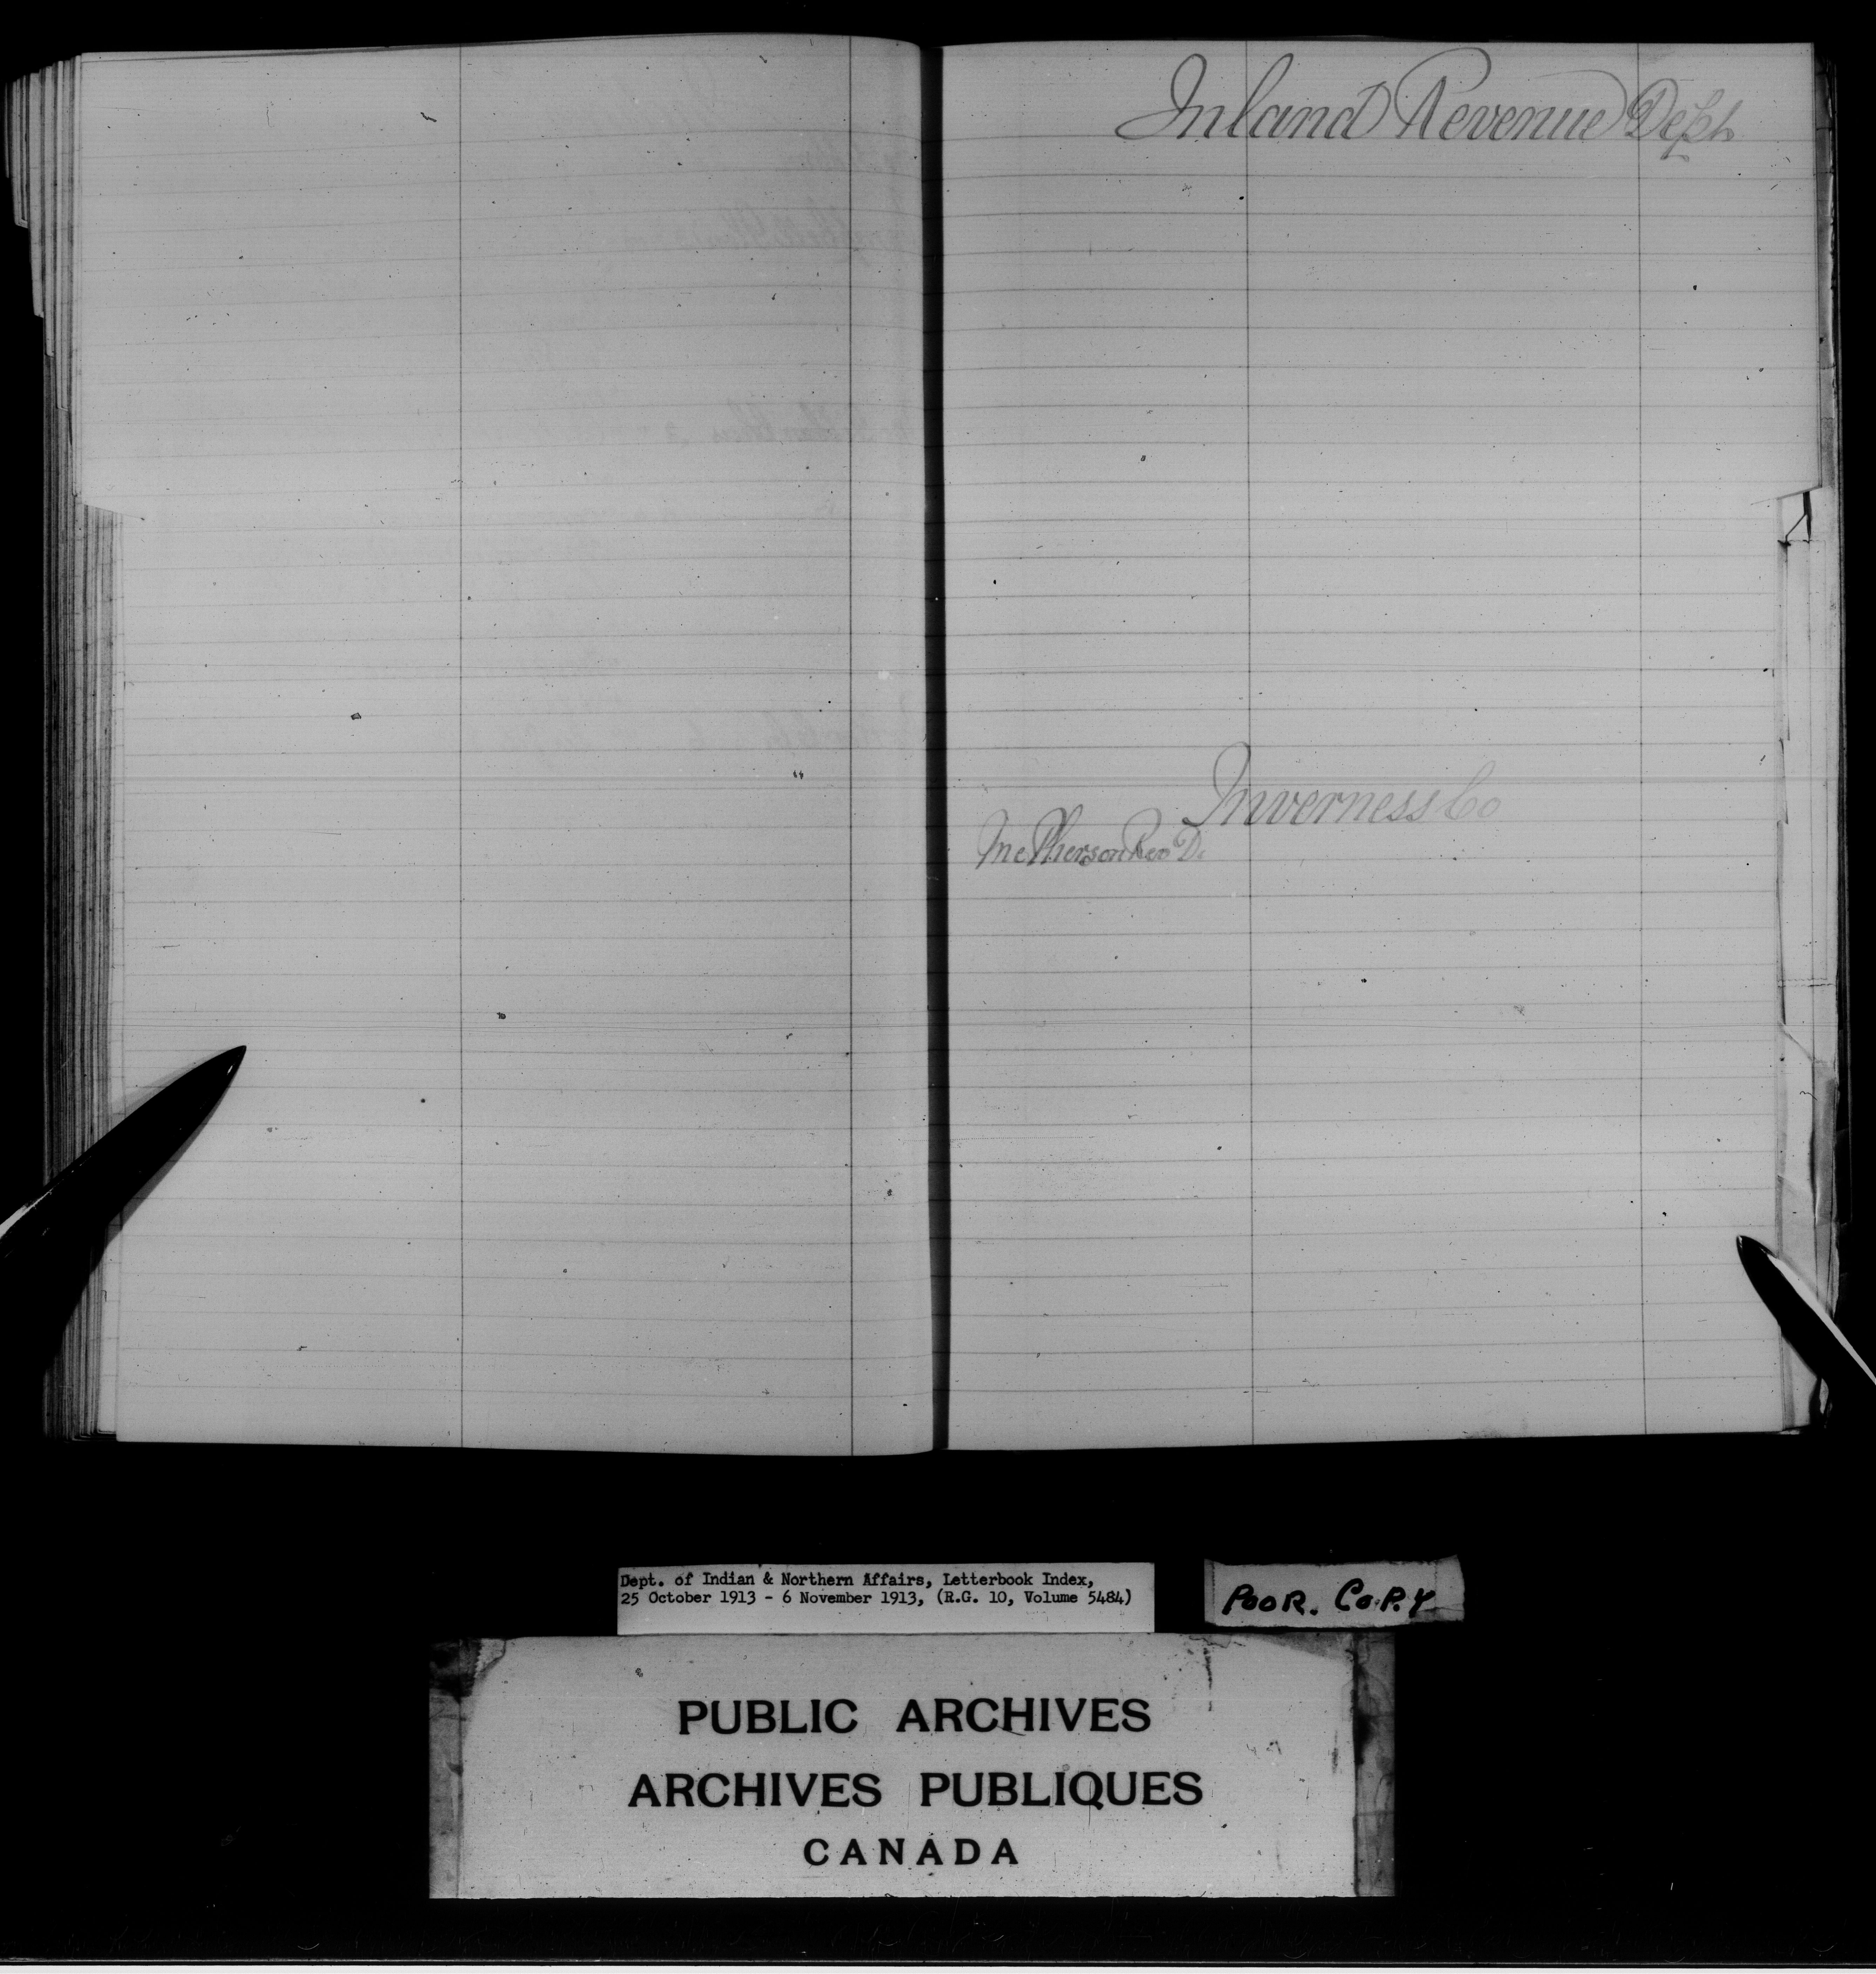 Inland Revenue Dept
Inverness Co
McPherson Rev D.
Dept. of Indian & Northern Affairs, Letterbook Index,
25 October 1913 - 6 November 1913, (R.G. 10, Volume 5484)
POOR. COPY
PUBLIC ARCHIVES
ARCHIVES PUBLIQUES
CANADA